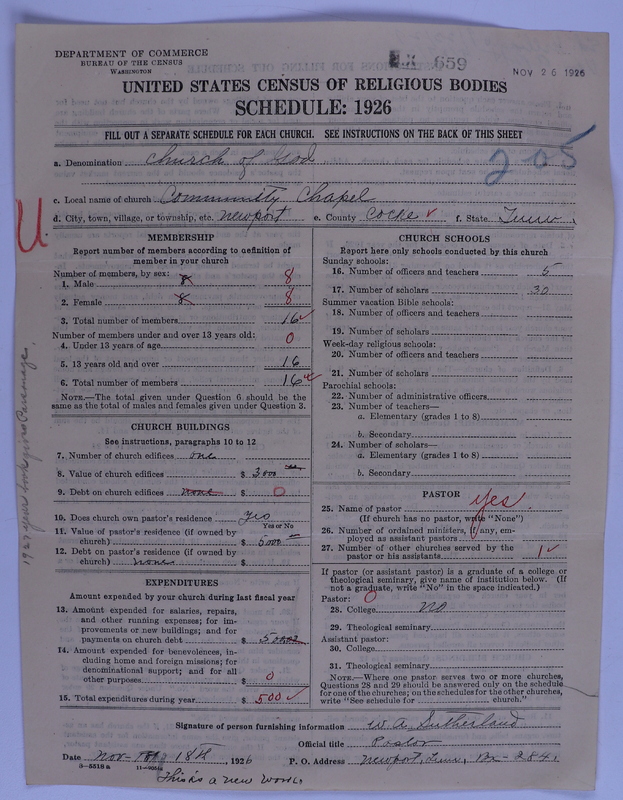 DEPARTMENT OF COMMERCE
BUREAU OF THE CENSUS
WASHINGTON
659
NOV 26 1926
UNITED STATES CENSUS OF RELIGIOUS BODIES
SCHEDULE: 1926
FILL OUT A SEPARATE SCHEDULE FOR EACH CHURCH. SEE INSTRUCTIONS ON THE BACK OF THIS SHEET
205
a. Denomination Church of God
c. Local name of church Community Chapel
d. City, town, village, or township, etc. Newport e. County Cocke ✓ f. State Tenn.
U
MEMBERSHIP
Report number of members according to definition of
member in your church
Number of members, by sex:
1. Male 8 8
2. Female 8 8
3. Total number of members 16 ✓
Number of members under and over 13 years old:
4. Under 13 years of age 0
5. 13 years old and over 16
6. Total number of members 16 ✓
NOTE.—The total given under Question 6 should be
same as the total of males and females given under Question 3.
CHURCH BUILDINGS
See instructions, paragraphs 10 to 12
7. Number of church edifices one
8. Value of church edifices $ 3000
9. Debt on church edifices none $ 0
10. Does church own pastor's residence yes
Yes or No
11. Value of pastor's residence (if owned by
church) $ 5000
12. Debt on pastor's residence (if owned by
church) none $
EXPENDITURES
Amount expended by your church during last fiscal year
13. Amount expended for salaries, repairs,
and other running expenses; for im-
provements or new buildings; and for
payments on church debt $ 500
14. Amount expended for benevolences, in-
cluding home and foreign missions; for
denominational support; and for all
other purposes $ 0
15. Total expenditures during year $ 500 ✓
CHURCH SCHOOLS
Report here only schools conducted by this church
Sunday schools:
16. Number of officers and teachers 5
17. Number of scholars 30
Summer vacation Bible schools:
18. Number of officers and teachers
19. Number of scholars
Week-day religious schools:
20. Number of officers and teachers
21. Number of scholars
Parochial schools:
22. Number of administrative officers
23. Number of teachers—
a. Elementary (grades 1 to 8)
b. Secondary
24. Number of scholars—
a. Elementary (grades 1 to 8)
b. Secondary
PASTOR
25. Name of pastor yes
(If church has no pastor, write "None")
26. Number of ordained ministers, if any, em-
ployed as assistant pastors
27. Number of other churches served by the
pastor or his assistants 1 ✓
If pastor (or assistant pastor) is a graduate of a college or
theological seminary, give name of institution below. (If
not a graduate, write "No" in the space indicated.)
Pastor: 0
28. College no
29. Theological seminary
Assistant pastor:
30. College
31. Theological seminary
NOTE.—Where one pastor serves two or more churches,
Questions 28 and 29 should be answered only on the schedule
for one of the churches; on the schedules for the other churches,
write "See schedule for church."
Signature of person furnishing information W. A. Sutherland
Official title Pastor
Date Nov 18th, 1926 P. O. Address Newport, Tenn, Bx-284.
8—5518 a
This is a new work.
1927 year book gives Parsonage.